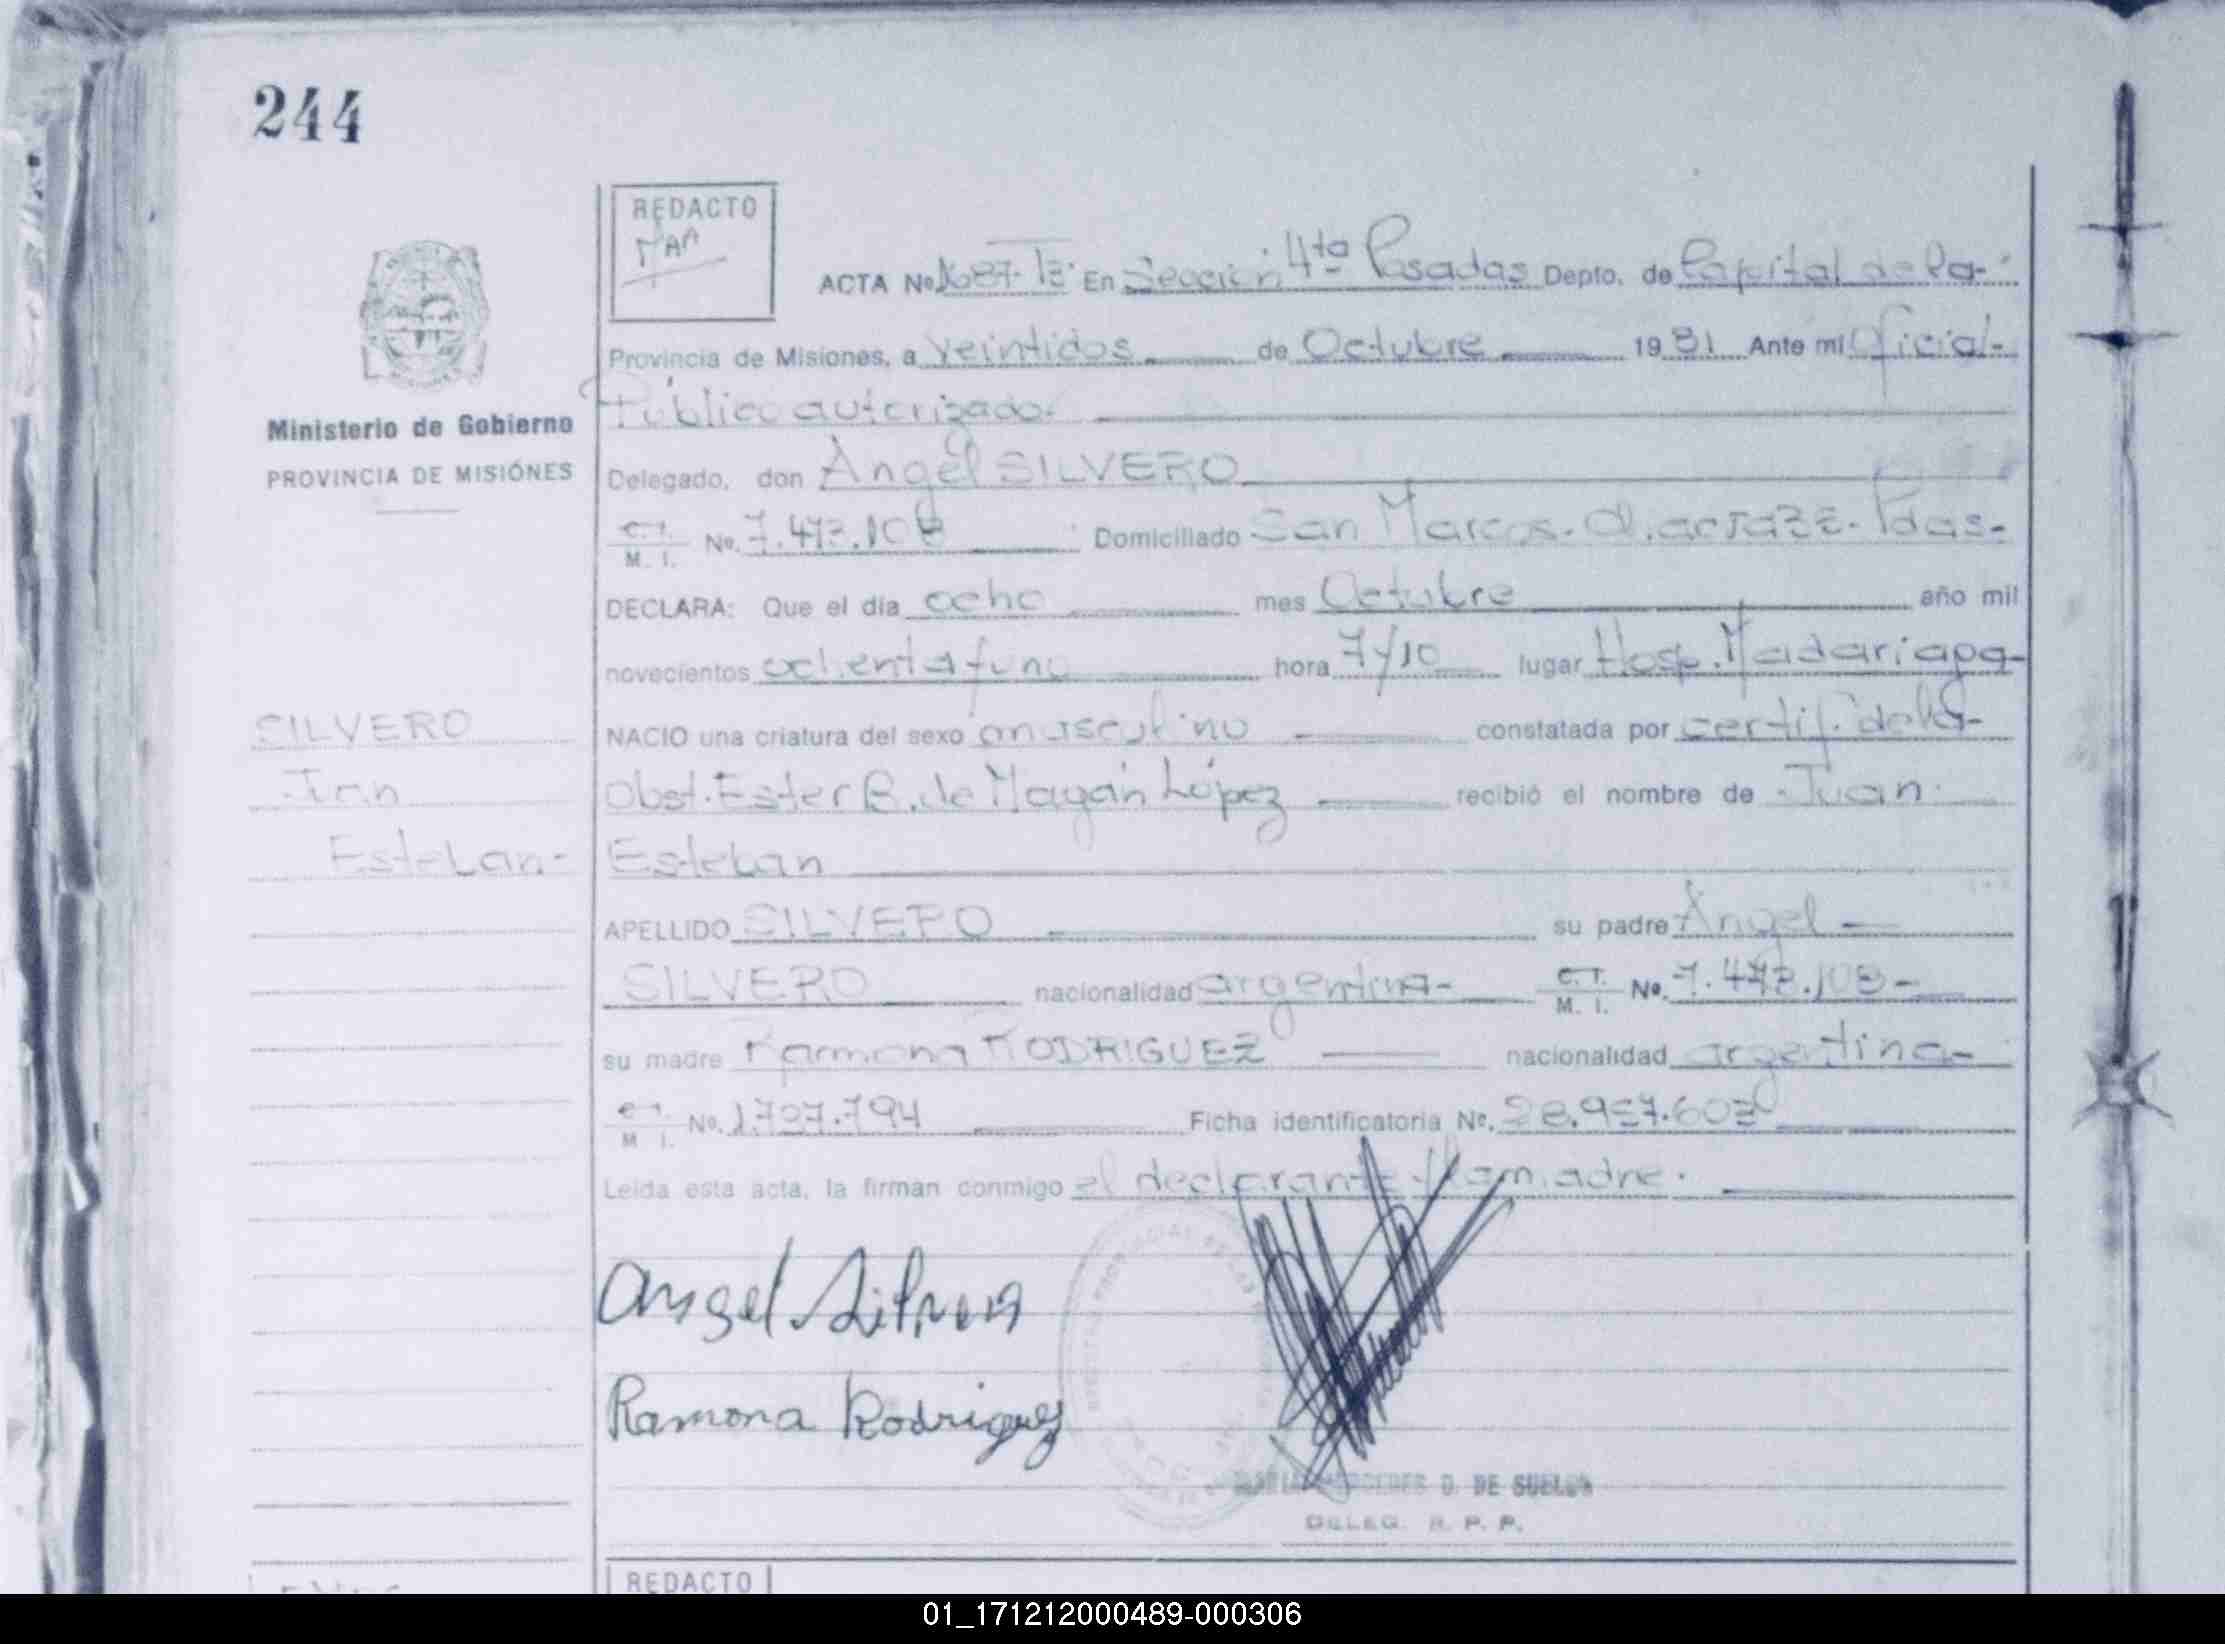 244
REDACTO
ACTA No 1687- Tº En Sección 4ta Posadas Depto. de Capital de la-
Provincia de Misiones, a veintidos de Octubre 1981 Ante mi Oficial-
Público autorizado.
Ministerio de Gobierno
PROVINCIA DE MISIÓNES
Delegado, don Angel SILVERO
C.I. M. I. No. 7.473.108 Domiciliado San Marcos. Pdas-
DECLARA: Que el día ocho mes Octubre año mil
novecientos ochenta y uno hora 7 y 10 lugar Hosp. Madariaga-
SILVERO
NACIO una criatura del sexo masculino constatada por certif. de la-
Juan
Obst. Ester B. de Mayán López recibió el nombre de Juan
Esteban-
Esteban
APELLIDO SILVERO su padre Angel
SILVERO nacionalidad argentina- C.I. M. I. No. 7.473.108-
su madre Ramona RODRIGUEZ nacionalidad argentina-
C.I. M. I. No. 1.727.794 Ficha identificatoria No. 28.957.603
Leída esta acta, la firman conmigo el declarante y la madre.
Angel Silvero
Ramona Rodriguez
MERCEDES D. DE SUELDO
DELEG. R. P. P.
REDACTO
01_171212000489-000306